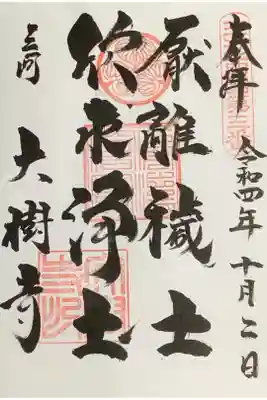 奉拝
令和四年 十月二日
厭離穢土
欣求浄土
三河
大樹寺